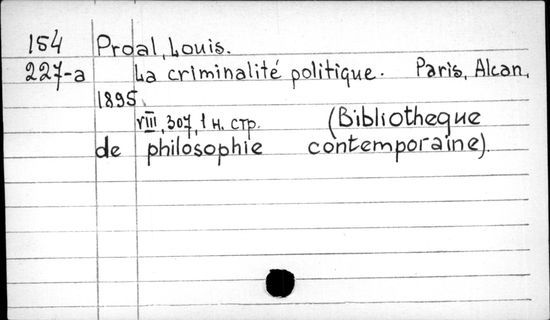 154 Proal, Louis.
227-a La criminalité politique. Paris, Alcan,
1895.
VIII, 307, 1 н. стр. (Bibliotheque
de philosophie contemporaine).